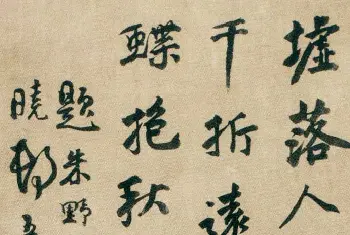 墟落人
千折遠
蝶抱秋
題朱野
曉